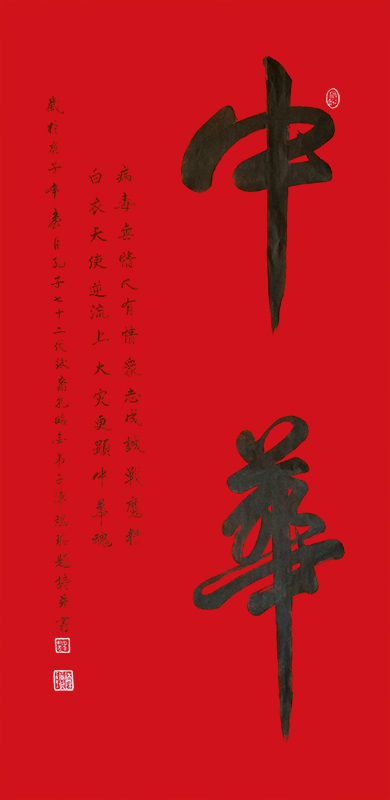 中華
病毒無情人有情衆志成城戰魔
白衣天使逆流上大灾更顯中華魂
歲於庚子年春月孔子七十二代裔孔弟子題詩并書